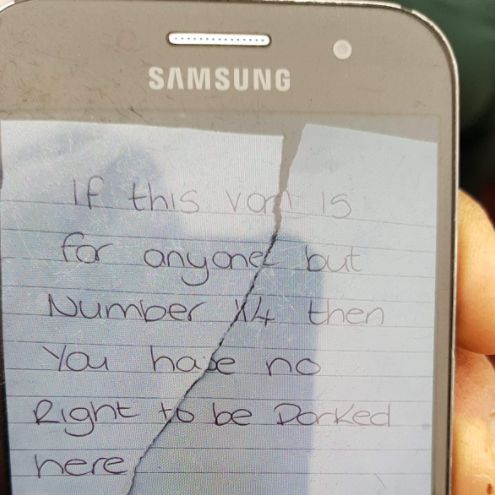 SAMSUNG
If this van is
for anyone but
Number 14 then
You have no
Right to be Parked
here